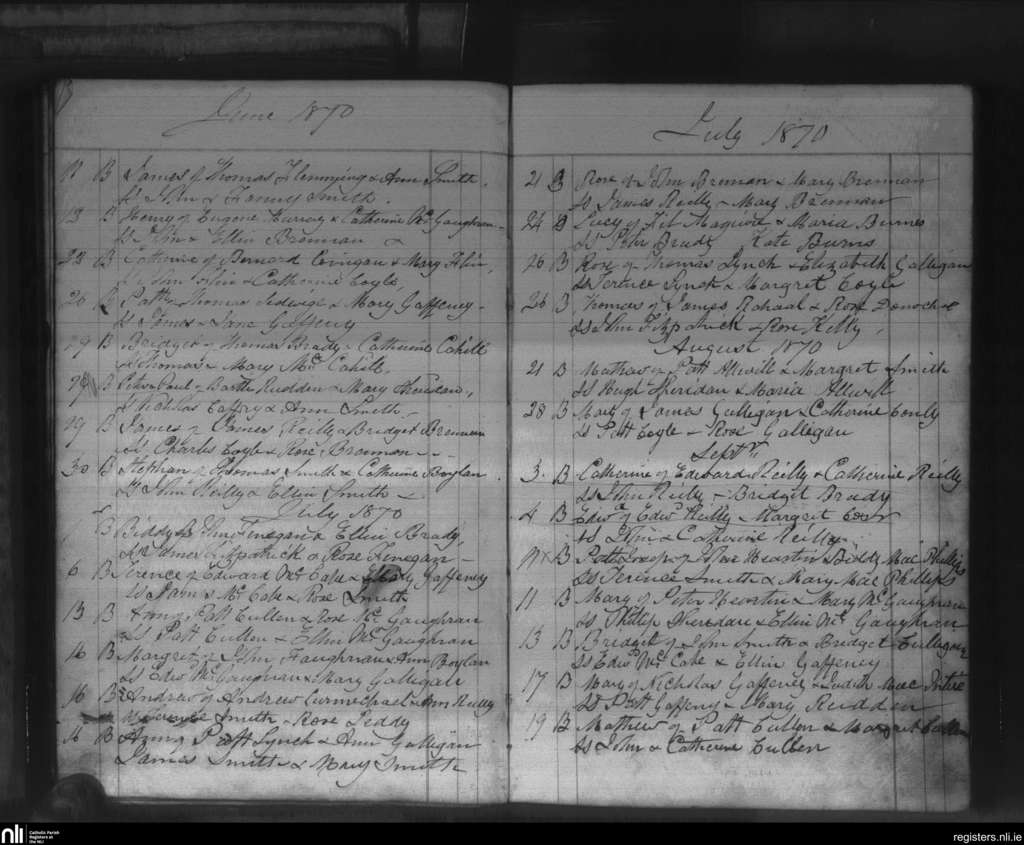 June 1870
17 B James of Thomas Flemming & Ann Smith.
Ss John & Fanny Smith.
18 B Henry of Eugene Murray & Catherine Mc Gaughran
Ss John & Ellin Brennan
28 B Catherine of Bernard Mary
Ss John & Catherine Coyle,
26 Patt of Thomas & Mary Gaffeney
Ss James & Jane Gaffeny
29 B Bridget of Thomas Brady & Catherine Cahill
Ss Thomas & Mary Mc Cahill,
29 B Paul of Barth Rudden & Mary Sheridan,
Ss Nicholas Caffry & Ann Smith
29 B James of James Reilly & Bridget Brennan
Ss Charles Coyle & Rose Brennan
30 B Stephan of Thomas Smith & Catherine Boylan
Ss John Reilly & Ellin Smith
July 1870
B Biddy of John Finegan & Ellin Brady,
Ss James & Rose Finegan
6 B Terence of Edward Mc Cabe & Gaffeney
Ss James Mc Cabe & Rose Smith
13 B Ann of Patt Cullen & Rose Mc Gaughran
Ss Patt Cullen & Ellin Mc Gaughran
16 B Margret of John Faughnan & Ann Boylan
Ss Edwd Mc Gaughran & Mary Galligan
16 B Andrew of Andrew Curmichael & Ann Reilly
Ss Smith & Rose Leddy
16 B Ann of Patt Lynch & Ann Galligan
James Smith & Mary Smith
July 1870
21 B Rose of John Brennan & Mary Brennan
Ss James Reilly & Mary Brennan
24 B Lucy of Maguire & Maria Burnes
Ss Peter Brady Kate Burns
26 B Rose of Thomas Lynch & Elizabeth Galligan
Ss Terence Lynch & Margret Coyle
26 B Thomas of James & Rose
Ss John Fitzpatrick & Rose Reilly,
August 1870
21 B Mathew of Patt Allwill & Margret Smith
Ss Hugh Sheridan & Maria Allwill
28 B Mary of James Gulligan & Catherine Conly
Ss Patt Coyle & Rose Galligan
Septr
3. B Catherine of Edward Reilly & Catherine Reilly
Ss John Reilly & Bridget Brady
4 B Edwd of Edwd Reilly & Margret
Ss John & Catherine Reilly
B Patt Joseph of & Biddy Mac Phillips
Ss Terence Smith & Mary Mac Phillips
11 B Mary of Peter & Mary Mc Gaughran
Ss Phillip Sheridan & Ellin Mc Gaughran
13 B Bridget of John Smith & Bridget
Ss Edwd Mc Cabe & Ellin Gaffeney
17 B Mary of Nicholas Gaffeney & Judith Mac
Ss Patt Gaffeny & Mary Rudden
19 B Mathew of Patt Cullen & Margret Cullen
Ss John & Catherine Cullen
nli
Catholic Parish
Registers at
the NLI
registers.nli.ie